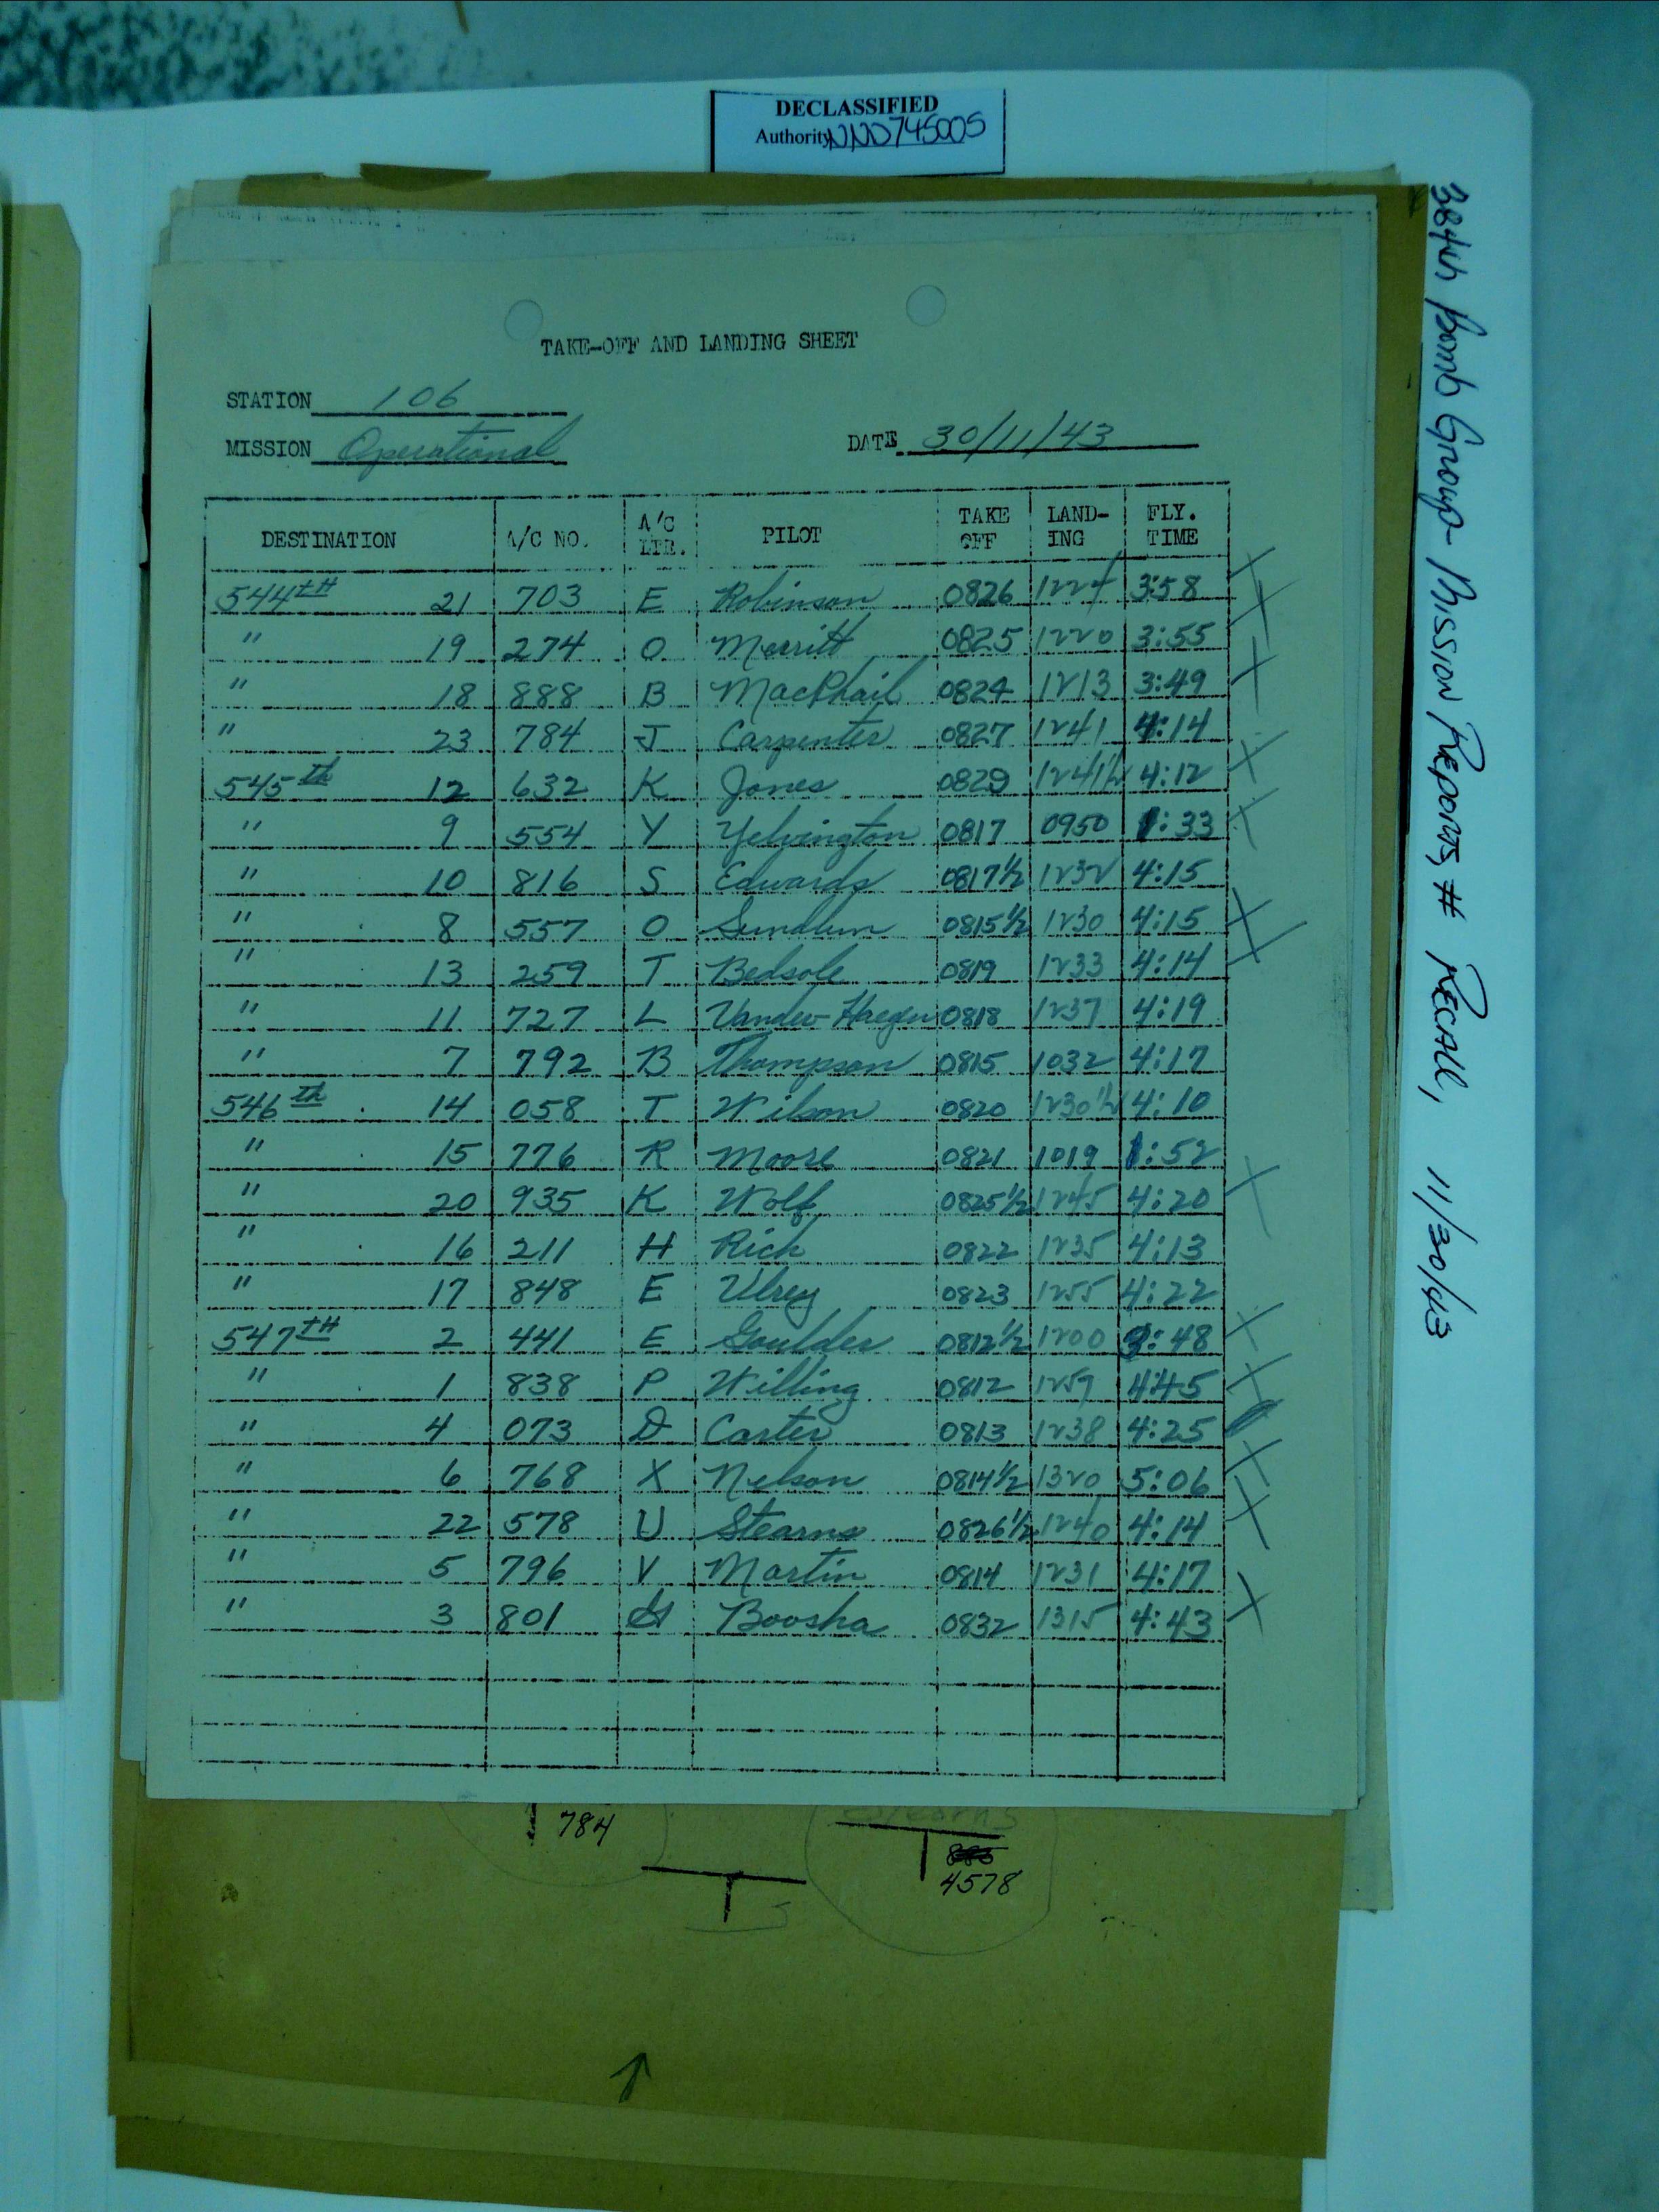 DECLASSIFIED
Authority NND745005
384th Bomb Group - Mission Reports, # Recall, 11/30/43
TAKE-OFF AND LANDING SHEET
STATION 106
MISSION Operational DATE 30/11/43
DESTINATION A/C NO. A/C LTR. PILOT TAKE OFF LAND-ING FLY. TIME
544TH 21 703 E Robinson 0826 3:58
" 19 274 O Merritt 0825 1220 3:55
" 18 888 B MacPhail 0824 1213 3:49
" 23 784 J Carpenter 0827 1241 4:14
545th 12 632 K Jones 0829 1241½ 4:12
" 9 554 Y Yelvington 0817 0950 1:33
" 10 816 S Edwards 0817½ 1232 4:15
" 8 557 O Sundlun 0815½ 1230 4:15
" 13 259 T Bedsole 0819 1233 4:14
" 11 727 L Vander-Haegen 0818 1237 4:19
" 7 792 B Thompson 0815 1032 4:17
546th 14 058 T Wilson 0820 1230½ 4:10
" 15 776 R Moore 0821 1019 1:52
" 20 935 K Wolf 0825½ 1245 4:20
" 16 211 H Rich 0822 1235 4:13
" 17 848 E Ulrey 0823 1255 4:22
547TH 2 441 E Goulder 0812½ 1200 3:48
" 1 838 P Willing 0812 1257 4:45
" 4 073 D Carter 0813 1238 4:25
" 6 768 X Nelson 0814½ 1320 5:06
" 22 578 U Stearns 0826½ 1240 4:14
" 5 796 V Martin 0814 1231 4:17
" 3 801 G Boosha 0832 1315 4:43
Stearns
784
4578